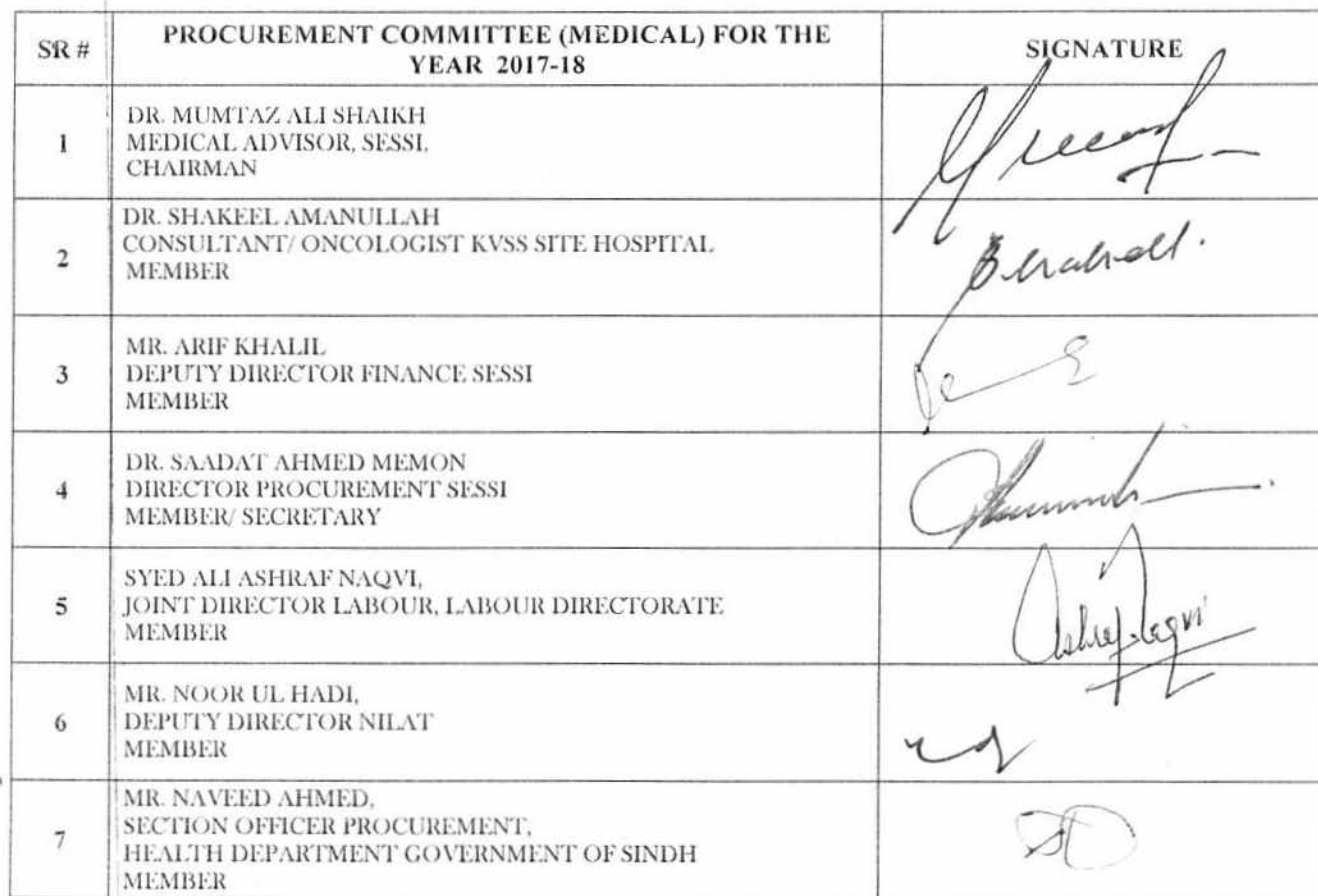 SR #
PROCUREMENT COMMITTEE (MEDICAL) FOR THE
YEAR 2017-18
SIGNATURE
1
DR. MUMTAZ ALI SHAIKH
MEDICAL ADVISOR, SESSI,
CHAIRMAN
2
DR. SHAKEEL AMANULLAH
CONSULTANT/ ONCOLOGIST KVSS SITE HOSPITAL
MEMBER
3
MR. ARIF KHALIL
DEPUTY DIRECTOR FINANCE SESSI
MEMBER
4
DR. SAADAT AHMED MEMON
DIRECTOR PROCUREMENT SESSI
MEMBER/ SECRETARY
5
SYED ALI ASHRAF NAQVI,
JOINT DIRECTOR LABOUR, LABOUR DIRECTORATE
MEMBER
6
MR. NOOR UL HADI,
DEPUTY DIRECTOR NILAT
MEMBER
7
MR. NAVEED AHMED,
SECTION OFFICER PROCUREMENT,
HEALTH DEPARTMENT GOVERNMENT OF SINDH
MEMBER